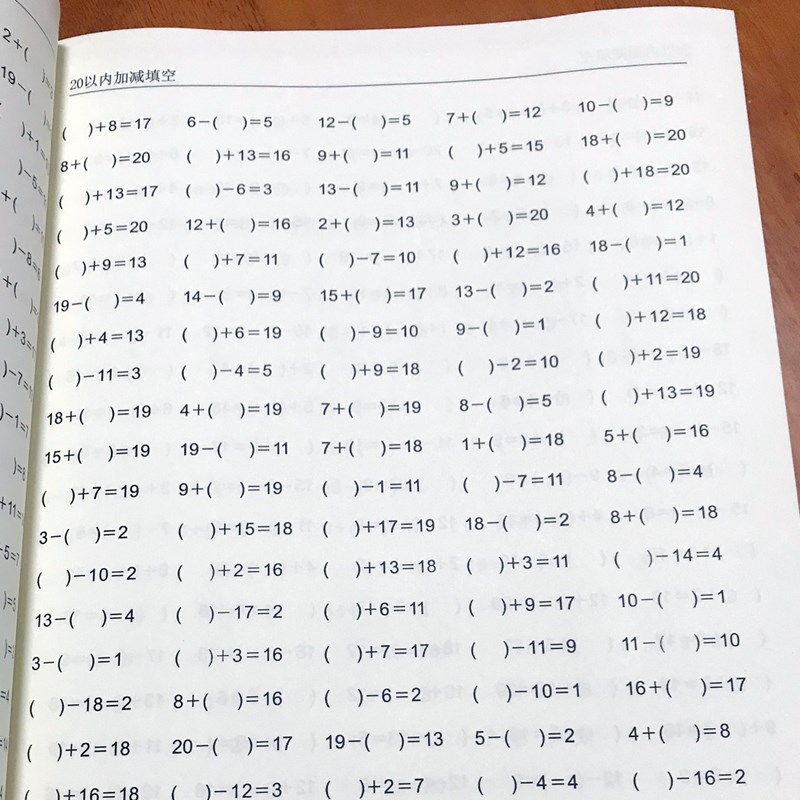 20以内加减填空
(  )+8=17  6-(  )=5  12-(  )=5  7+(  )=12  10-(  )=9
8+(  )=20  (  )+13=16  9+(  )=11  (  )+5=15  18+(  )=20
(  )+13=17  (  )-6=3  13-(  )=11  9+(  )=12  (  )+18=20
(  )+5=20  12+(  )=16  2+(  )=13  3+(  )=20  4+(  )=12
(  )+9=13  (  )+7=11  (  )-7=10  (  )+12=16  18-(  )=1
19-(  )=4  14-(  )=9  15+(  )=17  13-(  )=2  (  )+11=20
(  )+4=13  (  )+6=19  (  )-9=10  9-(  )=1  (  )+12=18
(  )-11=3  (  )-4=5  (  )+9=18  (  )-2=10  (  )+2=19
18+(  )=19  4+(  )=19  7+(  )=19  8-(  )=5  (  )+13=19
15+(  )=19  19-(  )=11  7+(  )=18  1+(  )=18  5+(  )=16
(  )+7=19  9+(  )=19  (  )-1=11  (  )-7=11  8-(  )=4
3-(  )=2  (  )+15=18  (  )+17=19  18-(  )=2  8+(  )=18
(  )-10=2  (  )+2=16  (  )+13=18  (  )+3=11  (  )-14=4
13-(  )=4  (  )-17=2  (  )+6=11  (  )+9=17  10-(  )=1
3-(  )=1  (  )+3=16  (  )+7=17  (  )-11=9  11-(  )=10
(  )-18=2  8+(  )=16  (  )-6=2  (  )-10=1  16+(  )=17
(  )+2=18  20-(  )=17  19-(  )=13  5-(  )=2  4+(  )=8
(  )+16=18  (  )-12=3  (  )+2=7  (  )-4=4  (  )-16=2